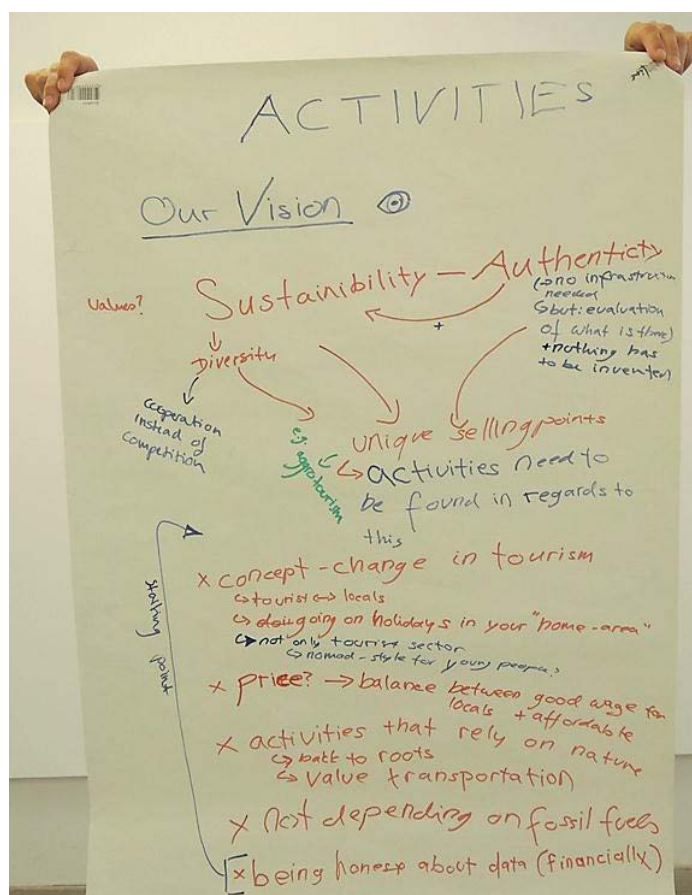 ACTIVITIES
Our Vision
Values?
Sustainibility — Authenticty
(→no infrastructure
needed
↳but: evaluation
of what is there)
+nothing has
to be invented
+
Diversity
cooperation
instead of
competition
e.g. aggrotourism
unique sellingpoints
↳ activities need to
be found in regards to
this
starting point
x concept-change in tourism
↳tourist ↔ locals
↳ going on holidays in your "home-area"
↳not only tourism sector
↳nomad-style for young people
x price? → balance between good wage for
locals + affordable
x activities that rely on nature
↳ back to roots
↳ value transportation
x not depending on fossil fuels
x being honest about data (financially)